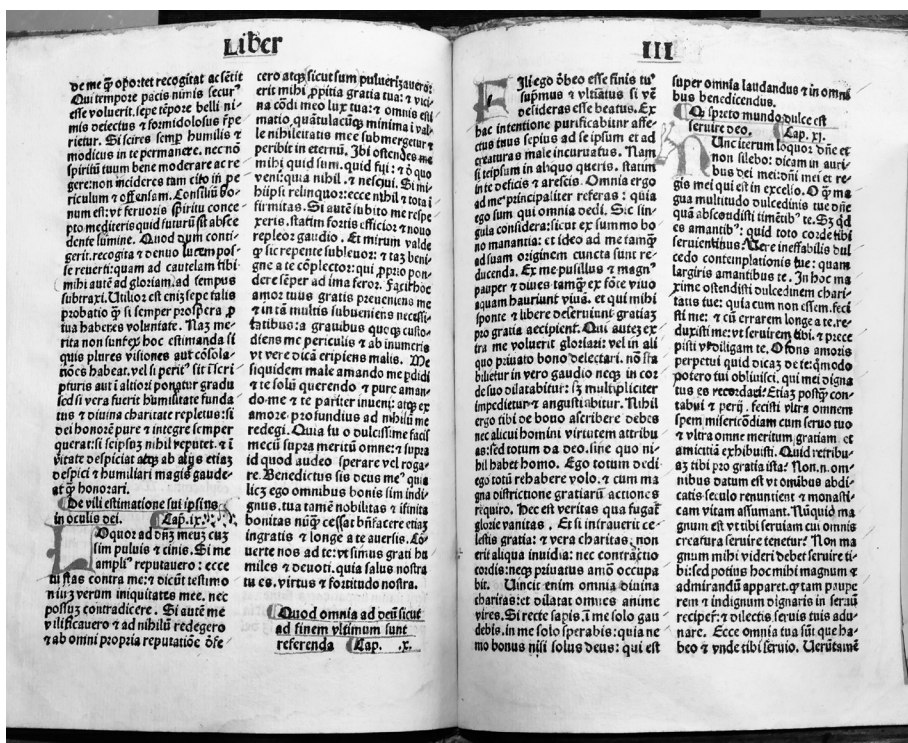 Liber
de me ꝙ oportet recogitat ac sētit
Qui tempore pacis nimis securꝰ
esse voluerit. sepe tēpore belli ni-
mis deiectus ⁊ formidolosus rpe
rietur. Si scires semp̄ humilis ⁊
modicus in te permanere. nec nō
spiritū tuum bene moderare ac re
gere: non incideres tam cito in pe
riculum ⁊ offensam. Consiliū bo-
num est: vt feruoris spiritu conce
pto mediteris quid futurū sit absce
dente lumine. Quod dum conti-
gerit. recogita ⁊ denuo lucem pos-
se reuerti: quam ad cautelam tibi
mihi autē ad gloriam. ad tempus
subtraxi. Utilior est eniз sepe talis
probatio ꝙ̄ si semper prospera ꝓ
tua haberes volūtate. Naз me-
rita non sunt ex hoc estimanda si
quis plures visiones aut cōsola-
nōes habeat. vel si perit sit ī scri
pturis aut ī altiori ponatur gradu
sed si vera fuerit humilitate funda
tus ⁊ diuina charitate repletus: si
dei honorē pure ⁊ integre semper
querat: si seipsuз nihil reputet. ⁊ ī
vitate despiciat atqз ab alijs etiaз
despici ⁊ humiliari magis gaude-
at ꝙ̄ honorari.
De vili estimatione sui ipsius
in oculis dei. Cap. ix.
Loquor ad dn̄з meuз cuз
sim puluis ⁊ cinis. Si me
ampliꝰ reputauero: ecce
tu stas contra me: ⁊ dicūt testimo
niuз verum iniquitates mee. nec
possuз contradicere. Si autē me
vilificauero ⁊ ad nihilū redegero
⁊ ab omni propria reputatiōe dēfe
cero atqз sicut sum puluerizauero:
erit mihi ꝓpitia gratia tua: ⁊ vici-
na cōdi meo lux tua: ⁊ omnis esti
matio quātulacūqз minima ī val-
le nihileitatis mee submergetur ⁊
peribit in eternū. Ibi ostendes me
mihi quid sum. quid fui: ⁊ d̄ quo
veni: quia nihil. ⁊ nesciui. Si mi-
hiipsi relinquor: ecce nihil ⁊ tota ī
firmitas. Si autē subito me respe
xeris. statim fortis efficior ⁊ nouo
repleor gaudio. Et mirum valde
ꝙ sic repente subleuor: ⁊ taз beni-
gne a te cōplector: qui ꝓprio pon-
dere sēper ad ima feror. Facit hoc
amor tuus gratis preueniens me
⁊ in tā multis subueniens necessi-
tatibus: a grauibus quoqз custo-
diens me periculis ⁊ ab inumeris
vt vere dicā eripiens malis. M̄e
siquidem male amando me pdidi
⁊ te solū querendo ⁊ pure aman-
do me ⁊ te pariter inueni: atqз ex
amore profundius ad nihilū me
redegi. Quia tu o dulcissime facis
mecū supra meritū omne: ⁊ supra
id quod audeo sperare vel roga-
re. Benedictus sis deus meꝰ quia
licз ego omnibus bonis sim indi-
gnus. tua tamē nobilitas ⁊ ifinita
bonitas nūꝙ̄ cessat bn̄facere etiaз
ingratis ⁊ longe a te auersis. Cō-
uerte nos ad te: vt simus grati hu
miles ⁊ deuoti. quia salus nostra
tu es. virtus ⁊ fortitudo nostra.
Quod omnia ad deū sicut
ad finem vltimum sunt
referenda Cap. .x.
III
Fili ego d̄beo esse finis tuꝰ
supmus ⁊ vltiatus si vē
desideras esse beatus. Ex
hac intentione purificabitur affe-
ctus tuus sepius ad se ipsum et ad
creaturas male incuruatus. Nam
si teipsum in aliquo queris. statim
in te deficis ⁊ arescis. Omnia ergo
ad me principaliter referas: quia
ego sum qui omnia dedi. Sic sin-
gula considera: sicut ex summo bo
no manantia: et ideo ad me tamꝙ̄
ad suam originem cuncta sunt re-
ducenda. Ex me pusillus ⁊ magnꝰ
pauper ⁊ diues tamꝙ̄ ex fōte viuo
aquam hauriunt viuā. et qui mihi
sponte ⁊ libere deseruiunt gratiaз
pro gratia accipient. Qui auteз ex
tra me voluerit gloriari: vel in ali
quo priuato bono delectari. nō sta
bilietur in vero gaudio neqз in cor
de suo dilatabitur: sз multipliciter
impedietur ⁊ angustiabitur. Nihil
ergo tibi de bono ascribere debes
nec alicui homini virtutem attribu
as: sed totum da deo. sine quo ni-
hil habet homo. Ego totum dedi
ego totū rehabere volo. ⁊ cum ma
gna districtione gratiarū actiones
requiro. Hec est veritas qua fugat̄
glorie vanitas. Et si intrauerit ce-
lestis gratia: ⁊ vera charitas: non
erit aliqua inuidia: nec contractio
cordis: neqз priuatus amō occupa
bit. Uincit enim omnia diuina
charitas: et dilatat omnes anime
vires. Si recte sapis. ī me solo gau
debis. in me solo sperabis: quia ne
mo bonus nisi solus deus: qui est
super omnia laudandus ⁊ in omni
bus benedicendus.
Ꝙ spreto mundo dulce est
seruire deo. Cap. xi.
Nunc iterum loquor dn̄e et
non silebo: dicam in auri-
bus dei mei: dn̄i mei et re-
gis mei qui est in excelso. O ꝙ̄ ma
gua multitudo dulcedinis tue dn̄e
quā abscondisti timētibꝰ te. Sз qd̄
es amantibꝰ: quid toto corde tibi
seruientibus: Vere ineffabilis dul
cedo contemplationis tue: quam
largiris amantibus te. In hoc ma
xime ostendisti dulcedinem chari-
tatis tue: quia cum non essem. feci
sti me: ⁊ cū errarem longe a te. re-
duxisti me: vt seruirem tibi. ⁊ prece
pisti vt diligam te. O fons amoris
perpetui quid dicaз de te: qm̄odo
potero tui obliuisci. qui mei digna
tus es recordari: Etiaз postꝙ̄ con-
tabui ⁊ perij. fecisti vltra omnem
spem misericōdiam cum seruo tuo
⁊ vltra omne meritum. gratiam et
amicitiā exhibuisti. Quid retribu-
aз tibi pro gratia ista: Non. n. om-
nibus datum est vt omibus abdi-
catis seculo renuntient ⁊ monasti-
cam vitam assumant. Nūquid ma
gnum est vt tibi seruiam cui omnis
creatura seruire tenetur: Non ma
gnum mihi videri debet seruire ti-
bi: sed potius hoc mihi magnum ⁊
admirandū apparet. ꝙ tam paupe
rem ⁊ indignum dignaris in seruū
recipe: ⁊ dilectis seruis tuis adu-
nare. Ecce omnia tua sūt que ha-
beo ⁊ vnde tibi seruio. Uerūtamē